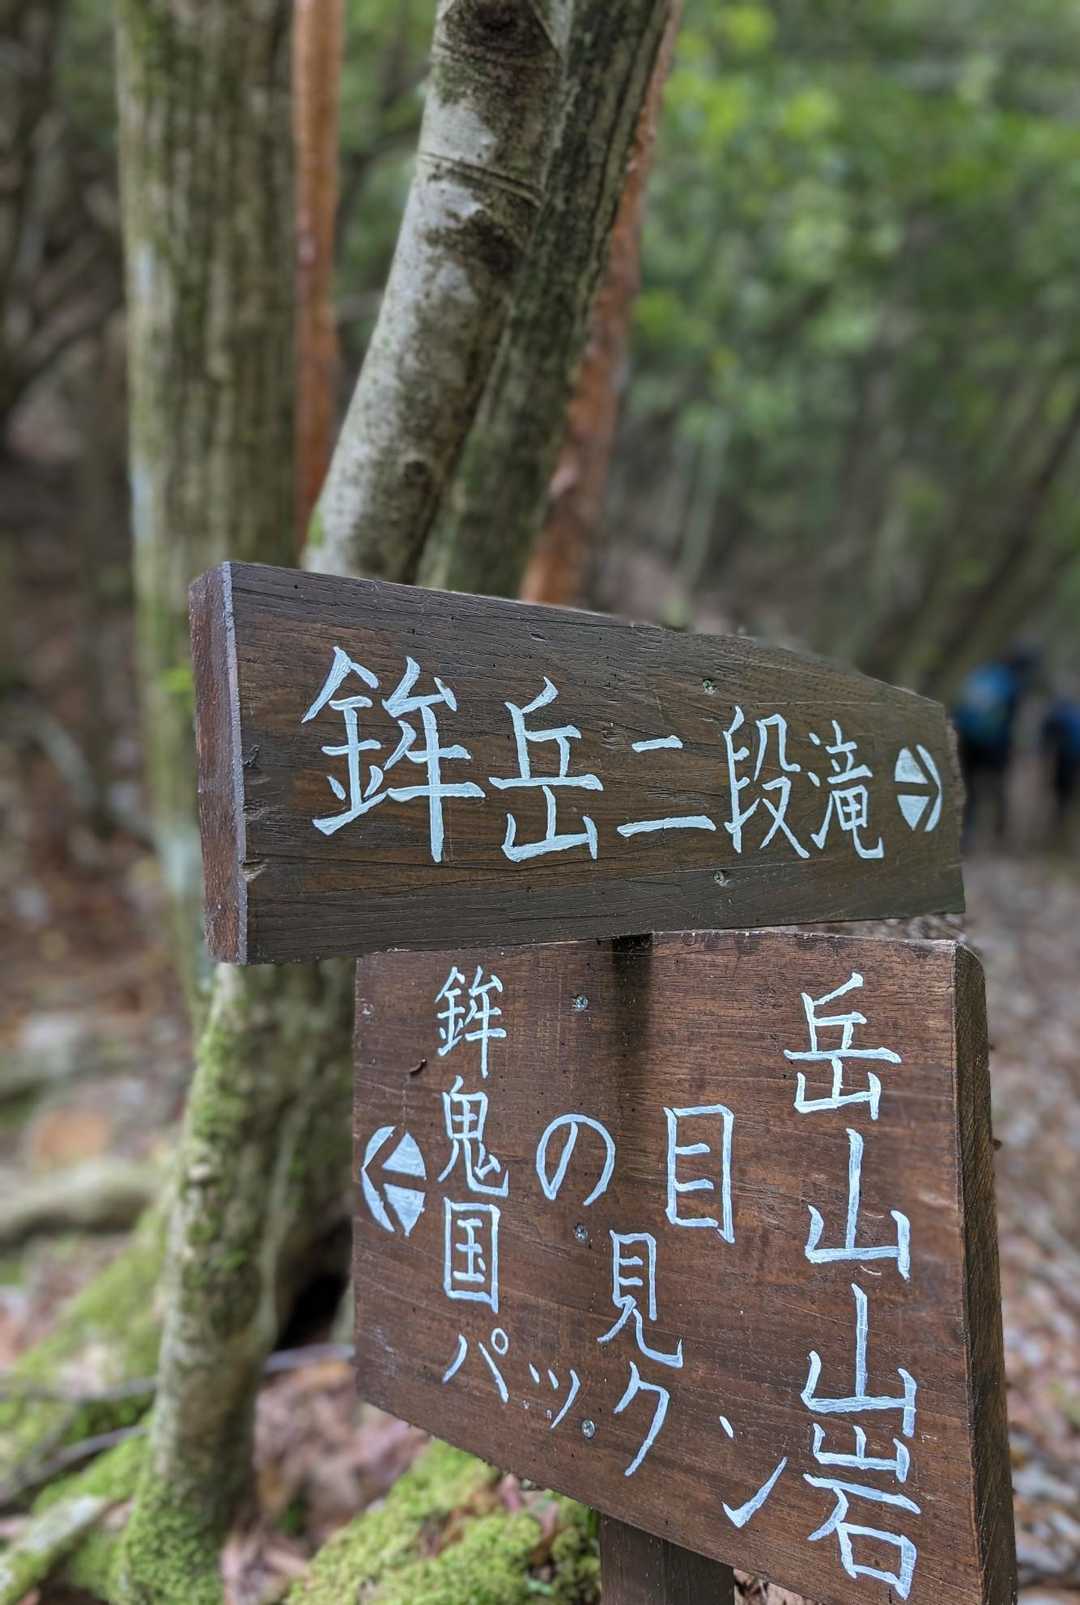 鉾岳二段滝
鉾岳
鬼の目山
国見山
パックン岩